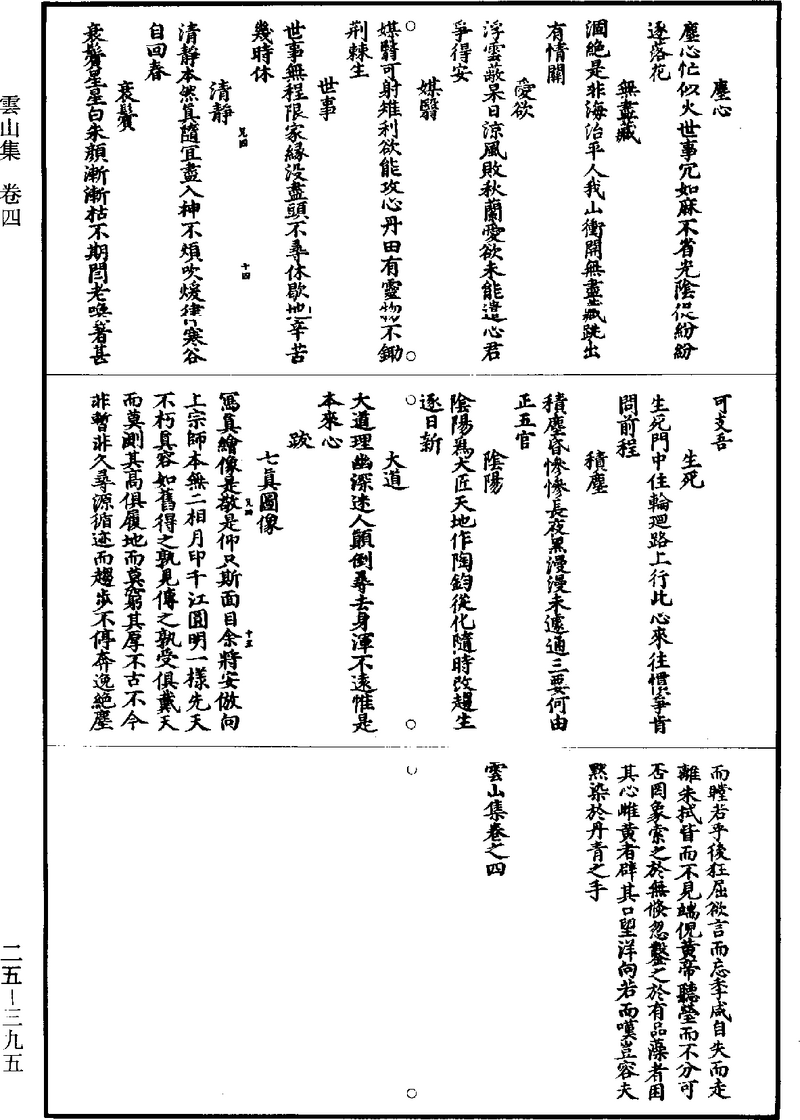 塵心
塵心忙似火世事冗如麻不省光陰促紛紛
逐落花
無盡藏
涸絶是非海治平人我山衝開無盡藏跳出
有情關
愛欲
浮雲蔽杲日涼風敗秋蘭愛欲未能遣心君
爭得安
媒翳
媒翳可射雉利欲能攻心丹田有靈物不鋤
荆棘生
世事
世事無程限家緣没盡頭不尋休歇地辛苦
幾時休
清静
清静本然真隨宜盡入神不煩吹煖律寒谷
自回春
衰鬢
衰鬢星星白朱顏漸漸枯不期閻老喚著甚
可支吾
生死
生死門中住輪迴路上行此心來往慣爭肯
問前程
積塵
積塵昏慘慘長夜黑漫漫未遽通三要何由
正五官
陰陽
陰陽爲大匠天地作陶鈞從化隨時改趨生
逐日新
大道
大道理幽深迷人顛倒尋去身渾不遠惟是
本來心
跋
七真圖像
寫真繪像是敬是仰只斯面目余將安倣向
上宗師本無二相月印千江圓明一樣先天
不朽真容如舊得之孰見傳之孰受俱戴天
而莫測其高俱履地而莫窮其厚不古不今
非暫非久尋源循迹而趨步不停奔逸絶塵
而瞠若乎後狂屈欲言而忘季咸自失而走
離朱拭眥而不見端倪黄帝聽瑩而不分可
否罔象索之於無倏忽鑿之於有品藻者困
其心雌黄者辟其口望洋向若而嘆豈容夫
黙染於丹青之手
雲山集卷之四
雲山集 卷四
二五–三九五